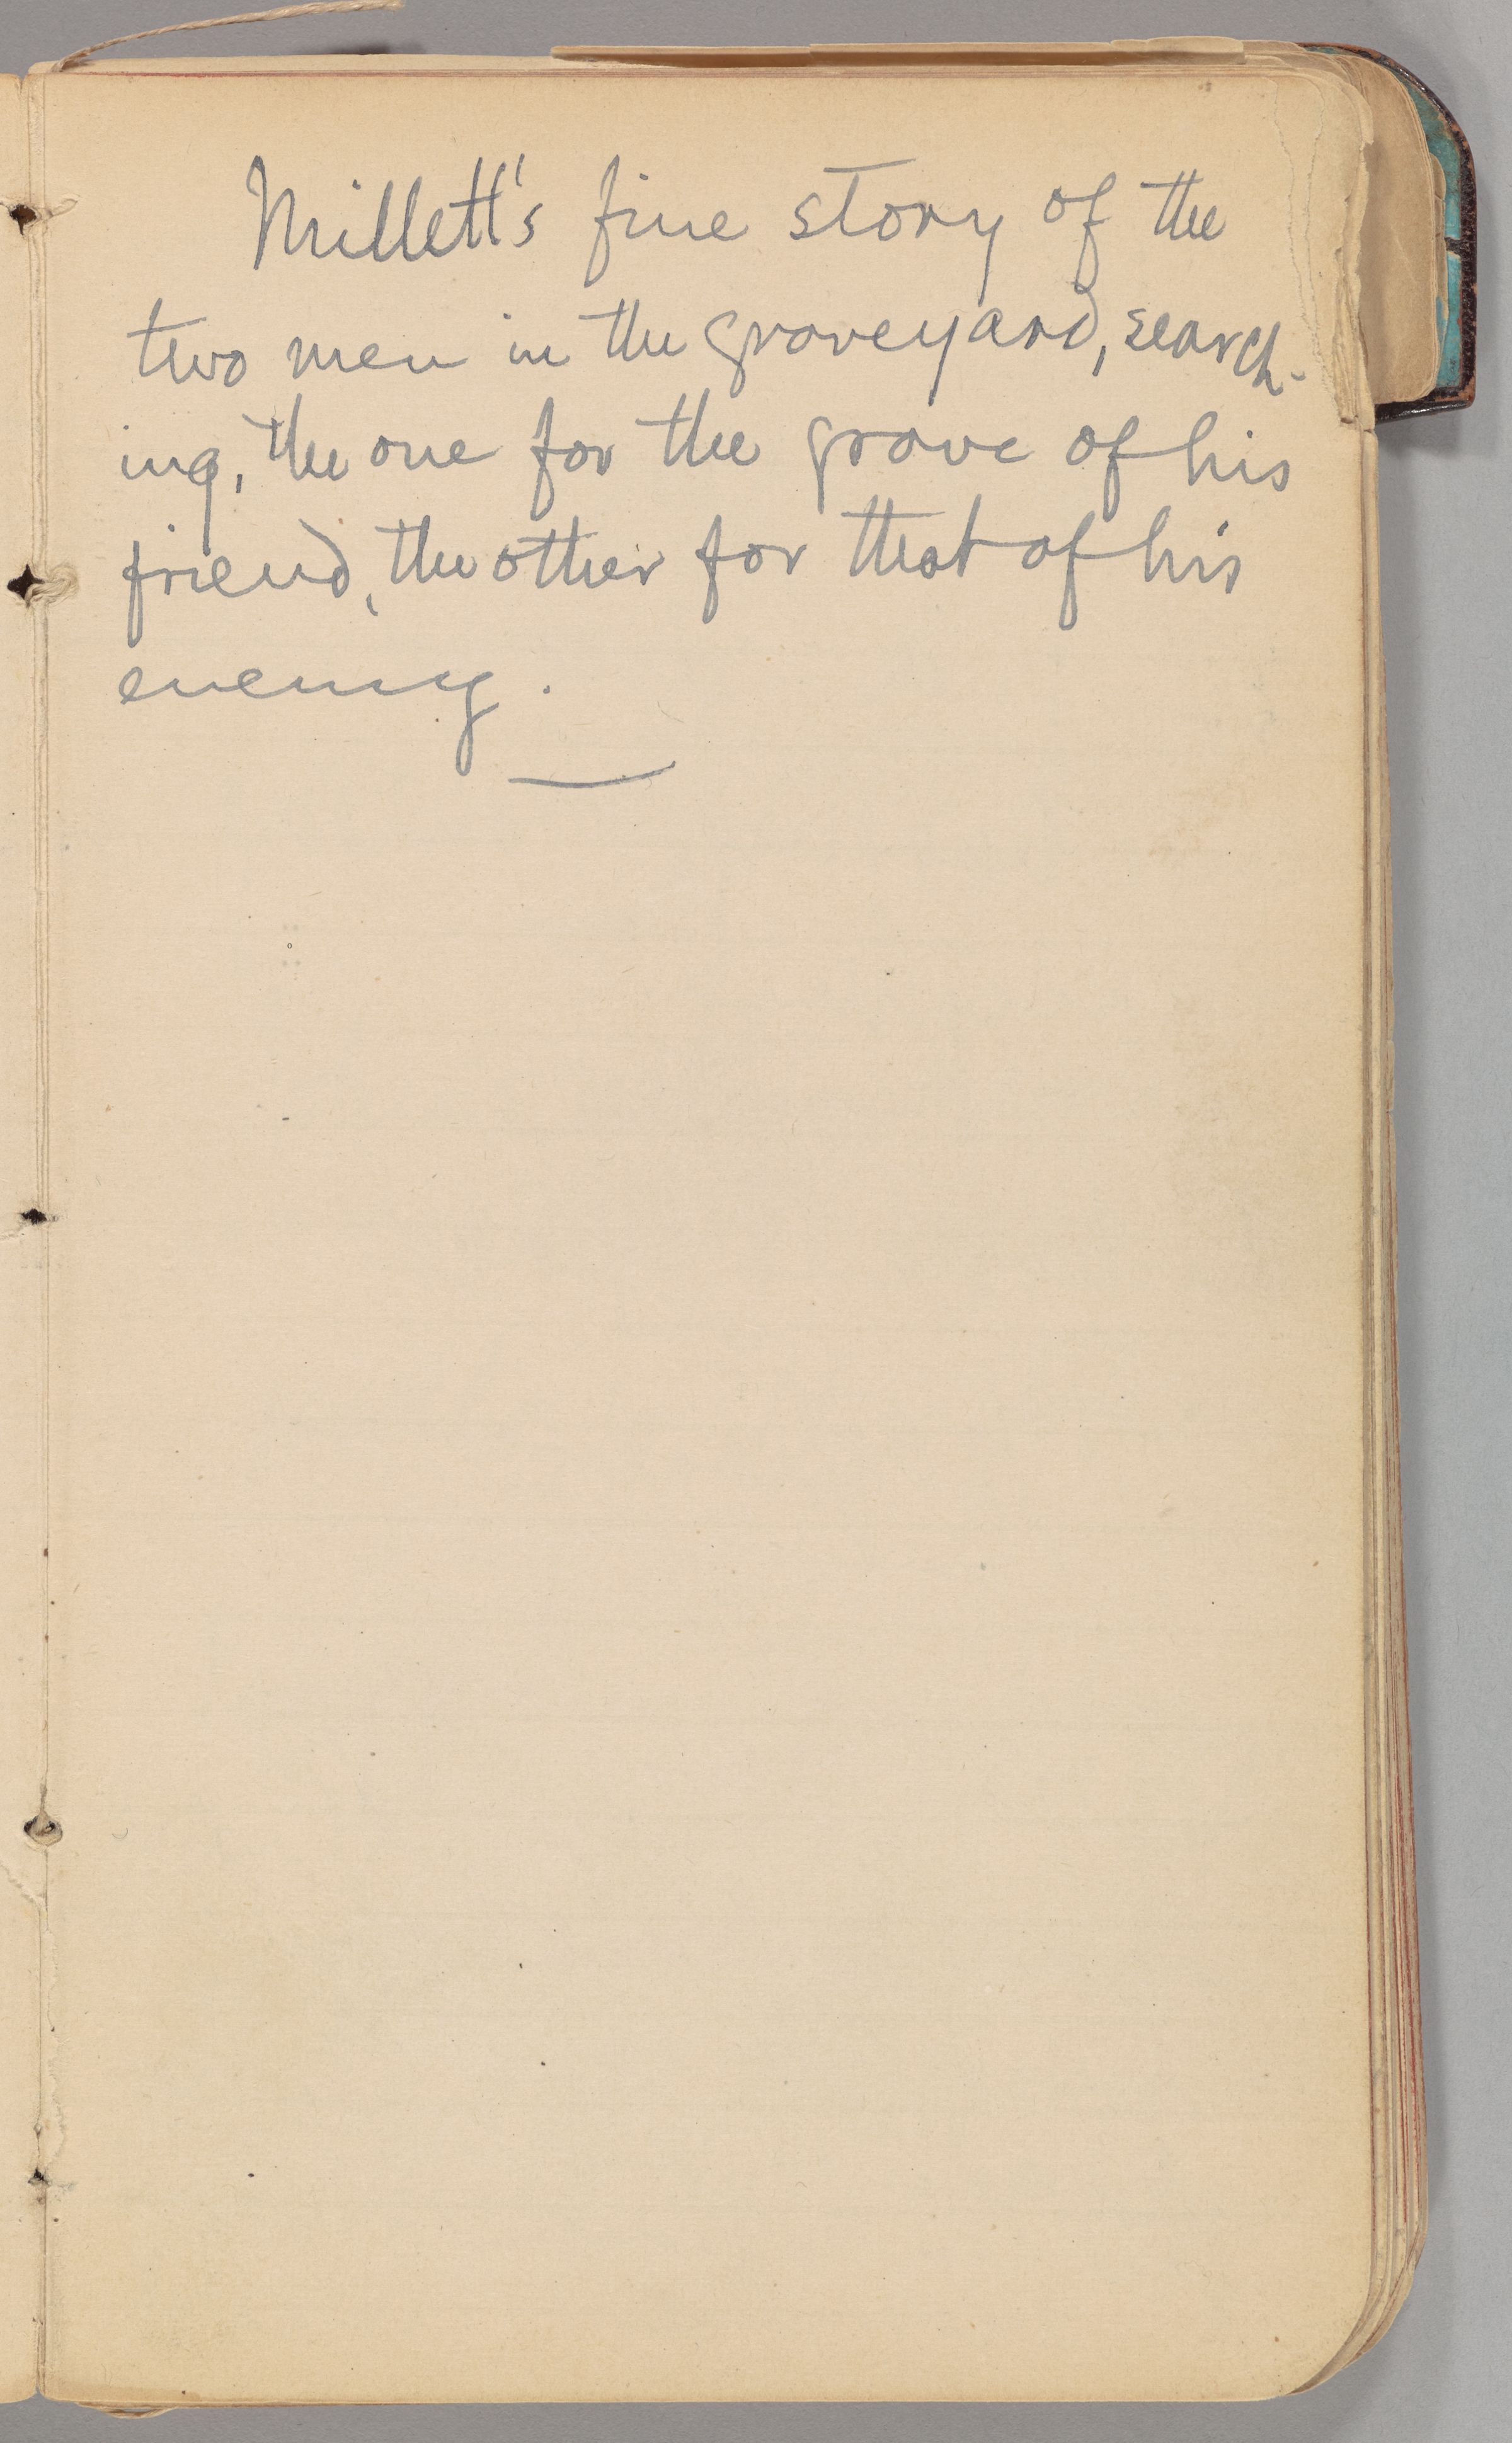 Millett's fine story of the
two men in the graveyard, search-
ing, the one for the grave of his
friend, the other for that of his
enemy.